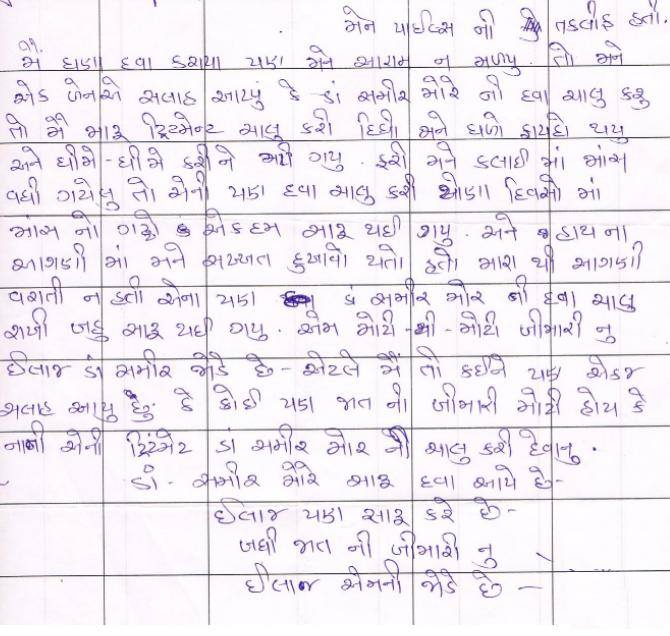 મેન પાઈલ્સ ની તકલીફ હતી.
મે ઘણા દવા કરાયા પણ મેને આરામ ન મળ્યુ. તો મને
એક બેનએ સલાહ આપ્યું કે ડાં સમીર મોરે ની દવા ચાલુ કરુ
તો મેં મારૂ ટ્રિટમેન્ટ ચાલુ કરી દિધી મને ઘળો ફાયદો થયુ
અને ધીમે-ધીમે કરીને મટી ગયુ. ફરી મને કલાઈ માં માંસ
વધી ગયેલુ તો એની પણ દવા ચાલુ કરી થોળા દિવસો માં
માંસ નો ગઠ્ઠો એકદમ સારૂ થઈ ગયુ. અને હાથના
આગળી માં મને સખ્ખત દુખાવો થતો હતો મારા થી આગળી
વરાતી ન હતી એના પણ ડં સમીર મોરે ની દવા ચાલુ
રાખી બહુ સારૂ થઈ ગયુ. એમ મોટી-થી-મોટી બીમારી નુ
ઈલાજ ડાં સમીર જોડે છે- એટલે મેં તો કઈને પણ એકજ
સલાહ આપુ છુ કે કોઈ પણ જાત ની બીમારી મોટી હોય કે
નાની એની ટ્રિટમેટ ડાં સમીર મોરે ની ચાલુ કરી દેવાનુ.
ડાં. સમીર મોરે સારૂ દવા આપે છે-
ઈલાજ પણ સારૂ કરે છે-
બધી જાત ની બીમારી નુ
ઈલાજ એમની જોડે છે -